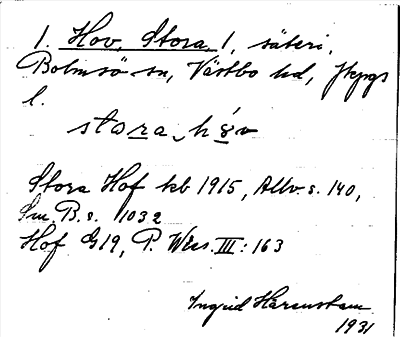 1. Hov, Stora 1, säteri,
Bolmsö sn, Västbo hd, Jkpgs
l.
stora hóv
Stora Hof kb 1915, Allv. s. 140,
Sm. B. s. 1032
Hof G19, P. Wies. III: 163
Ingrid Harenstam
1931